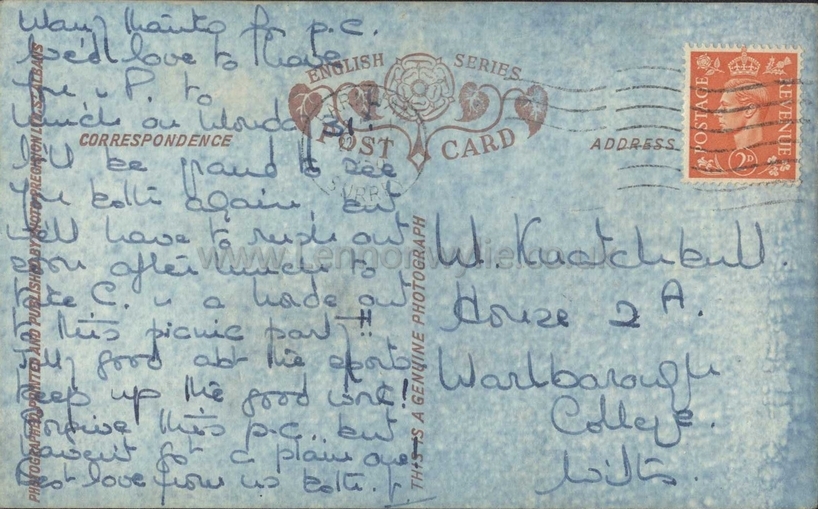 Many thanks for p.c.
We'd love to have
you & P. to
lunch on Monday
It'll be grand to see
you both again, but
we'll have to rush out
soon after lunch to
take C. & a horde out
to this picnic party!!
Jolly good abt the sports
keep up the good work!
Forgive this p.c., but
haven't got a plain one!
Best love from us both.
ENGLISH SERIES
POST CARD
CORRESPONDENCE
ADDRESS
POSTAGE REVENUE
2D
W. Knatchbull.
House 2 A.
Marlborough
College.
Wilts.
THIS IS A GENUINE PHOTOGRAPH